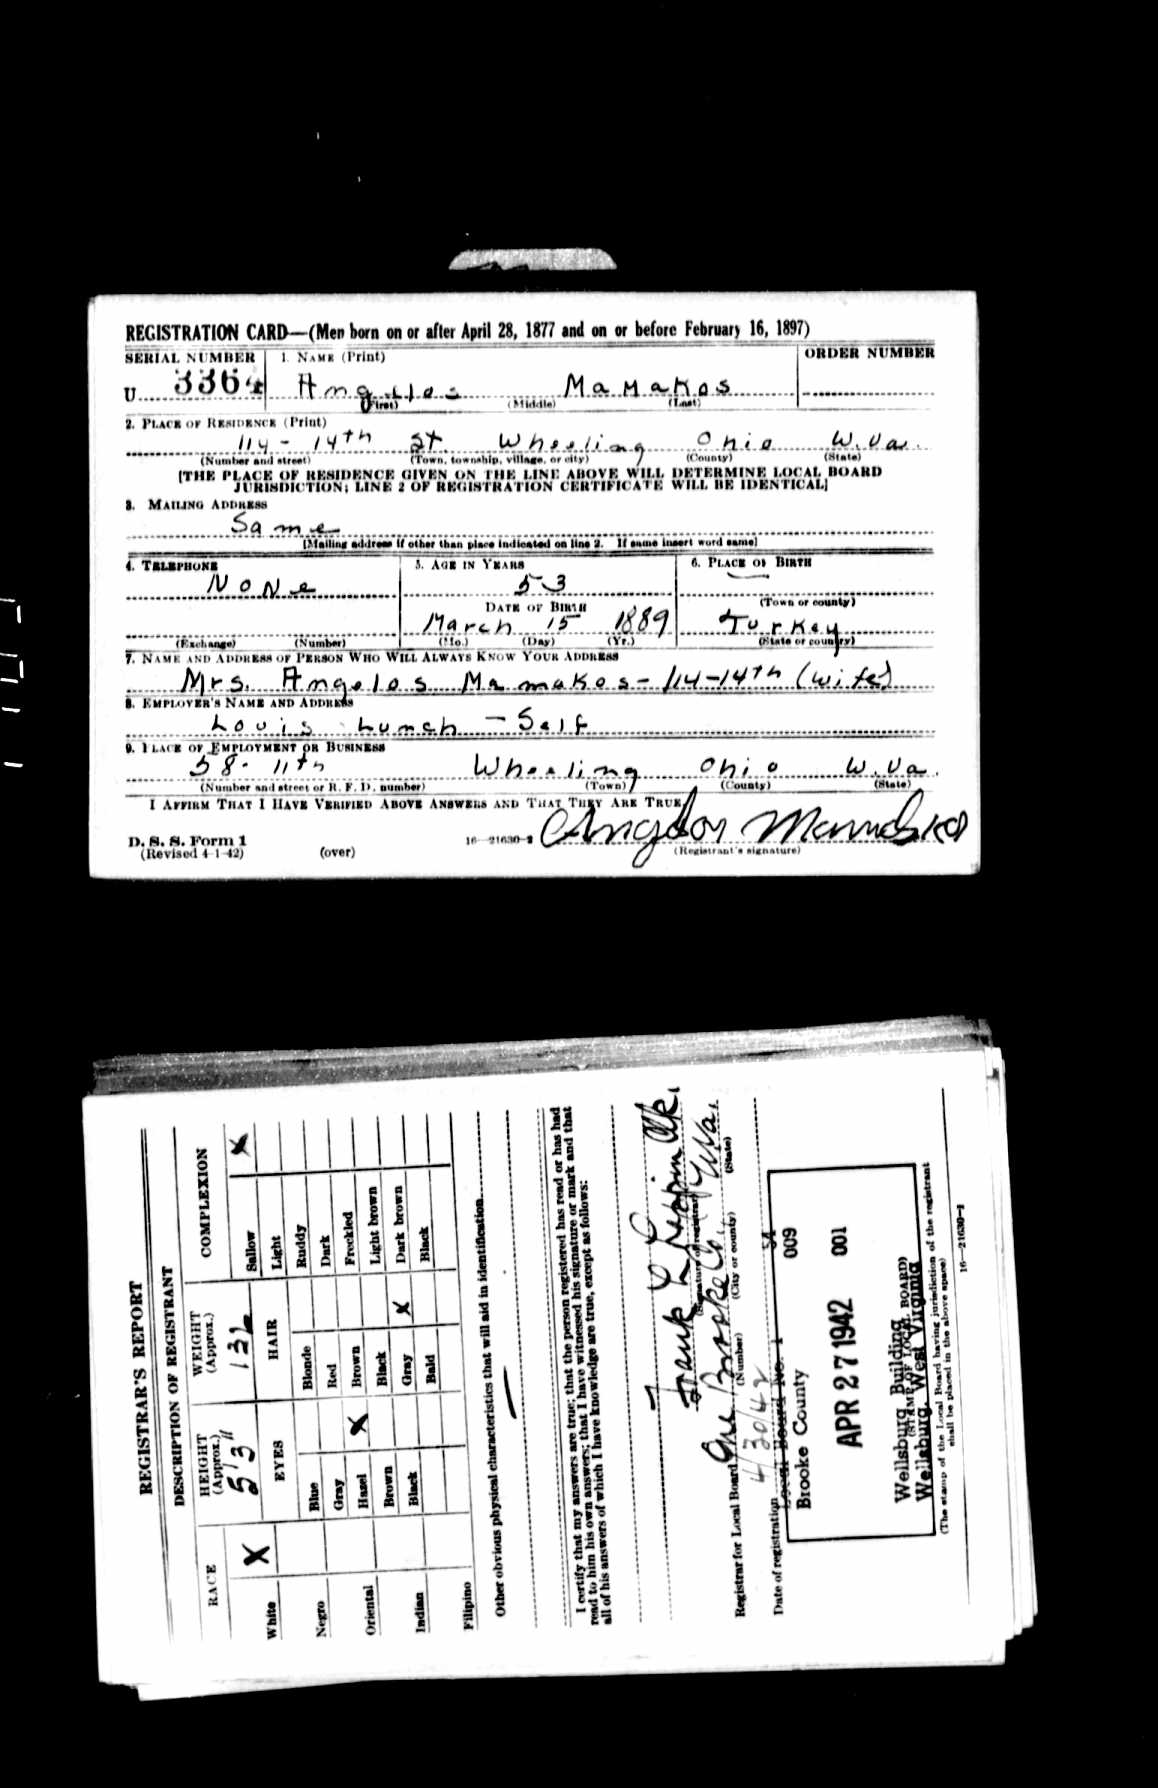 REGISTRATION CARD—(Men born on or after April 28, 1877 and on or before February 16, 1897)
SERIAL NUMBER 1. NAME (Print) ORDER NUMBER
U 3364 Angelos Mamakos
(First) (Middle) (Last)
2. PLACE OF RESIDENCE (Print)
114 - 14th St. Wheeling Ohio W.Va.
(Number and street) (Town, township, village, or city) (County) (State)
[THE PLACE OF RESIDENCE GIVEN ON THE LINE ABOVE WILL DETERMINE LOCAL BOARD
JURISDICTION; LINE 2 OF REGISTRATION CERTIFICATE WILL BE IDENTICAL]
3. MAILING ADDRESS
Same
[Mailing address if other than place indicated on line 2. If same insert word same]
4. TELEPHONE 5. AGE IN YEARS 6. PLACE OF BIRTH
None 53 —
DATE OF BIRTH (Town or county)
March 15 1889 Turkey
(Exchange) (Number) (Mo.) (Day) (Yr.) (State or country)
7. NAME AND ADDRESS OF PERSON WHO WILL ALWAYS KNOW YOUR ADDRESS
Mrs. Angelos Mamakos - 114-14th (wife)
8. EMPLOYER'S NAME AND ADDRESS
Louis Lunch - Self
9. PLACE OF EMPLOYMENT OR BUSINESS
58 - 11th Wheeling Ohio W.Va.
(Number and street or R. F. D. number) (Town) (County) (State)
I AFFIRM THAT I HAVE VERIFIED ABOVE ANSWERS AND THAT THEY ARE TRUE.
D. S. S. Form 1
(Revised 4-1-42) (over) 16—21630-2 Angelos Mamakos
(Registrant's signature)
REGISTRAR'S REPORT
DESCRIPTION OF REGISTRANT
RACE HEIGHT (Approx.) WEIGHT (Approx.) COMPLEXION
5'3" 136
White X Sallow X
EYES HAIR Light
Negro Blue Blonde Ruddy
Gray Red Dark
Oriental Hazel X Brown Freckled
Brown Black Light brown
Indian Black Gray X Dark brown
Bald Black
Filipino
Other obvious physical characteristics that will aid in identification
—
I certify that my answers are true; that the person registered has read or has had
read to him his own answers; that I have witnessed his signature or mark and that
all of his answers of which I have knowledge are true, except as follows:
Frank L
(Signature of registrar)
Registrar for Local Board One Brooke Co. W.Va.
(Number) (City or county) (State)
Date of registration 4/30/42
Local Board No. 1 54
Brooke County 009
APR 27 1942 001
Wellsburg Building
(STAMP OF LOCAL BOARD)
Wellsburg, West Virginia
(The stamp of the Local Board having jurisdiction of the registrant
shall be placed in the above space)
16—21630-2